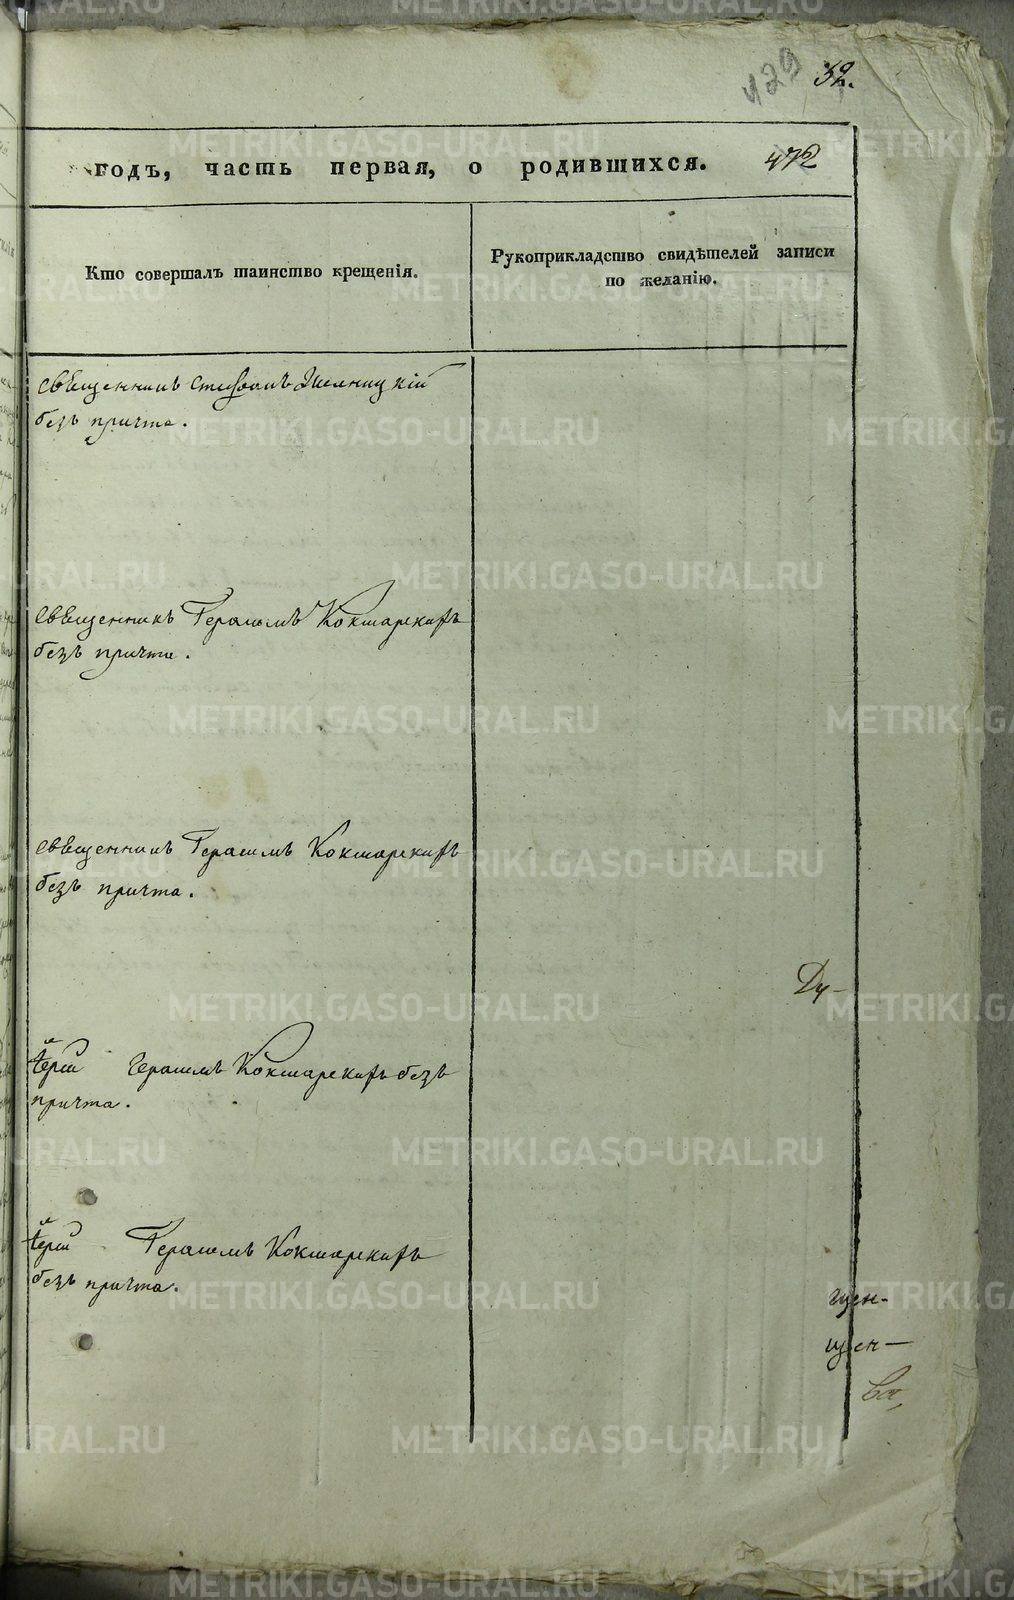 429 52.
годъ, часть первая, о родившихся. 472
Кто совершалъ таинство крещенія.
Рукоприкладство свидѣтелей записи
по желанію.
священникъ Стефанъ
безъ причта.
священникъ Герасимъ Кокшарскихъ
безъ причта.
священникъ Герасимъ Кокшарскихъ
безъ причта.
Ду-
Іерей Герасимъ Кокшарскихъ безъ
причта.
Іерей Герасимъ Кокшарскихъ
безъ причта.
щен-
щен-
METRIKI.GASO-URAL.RU